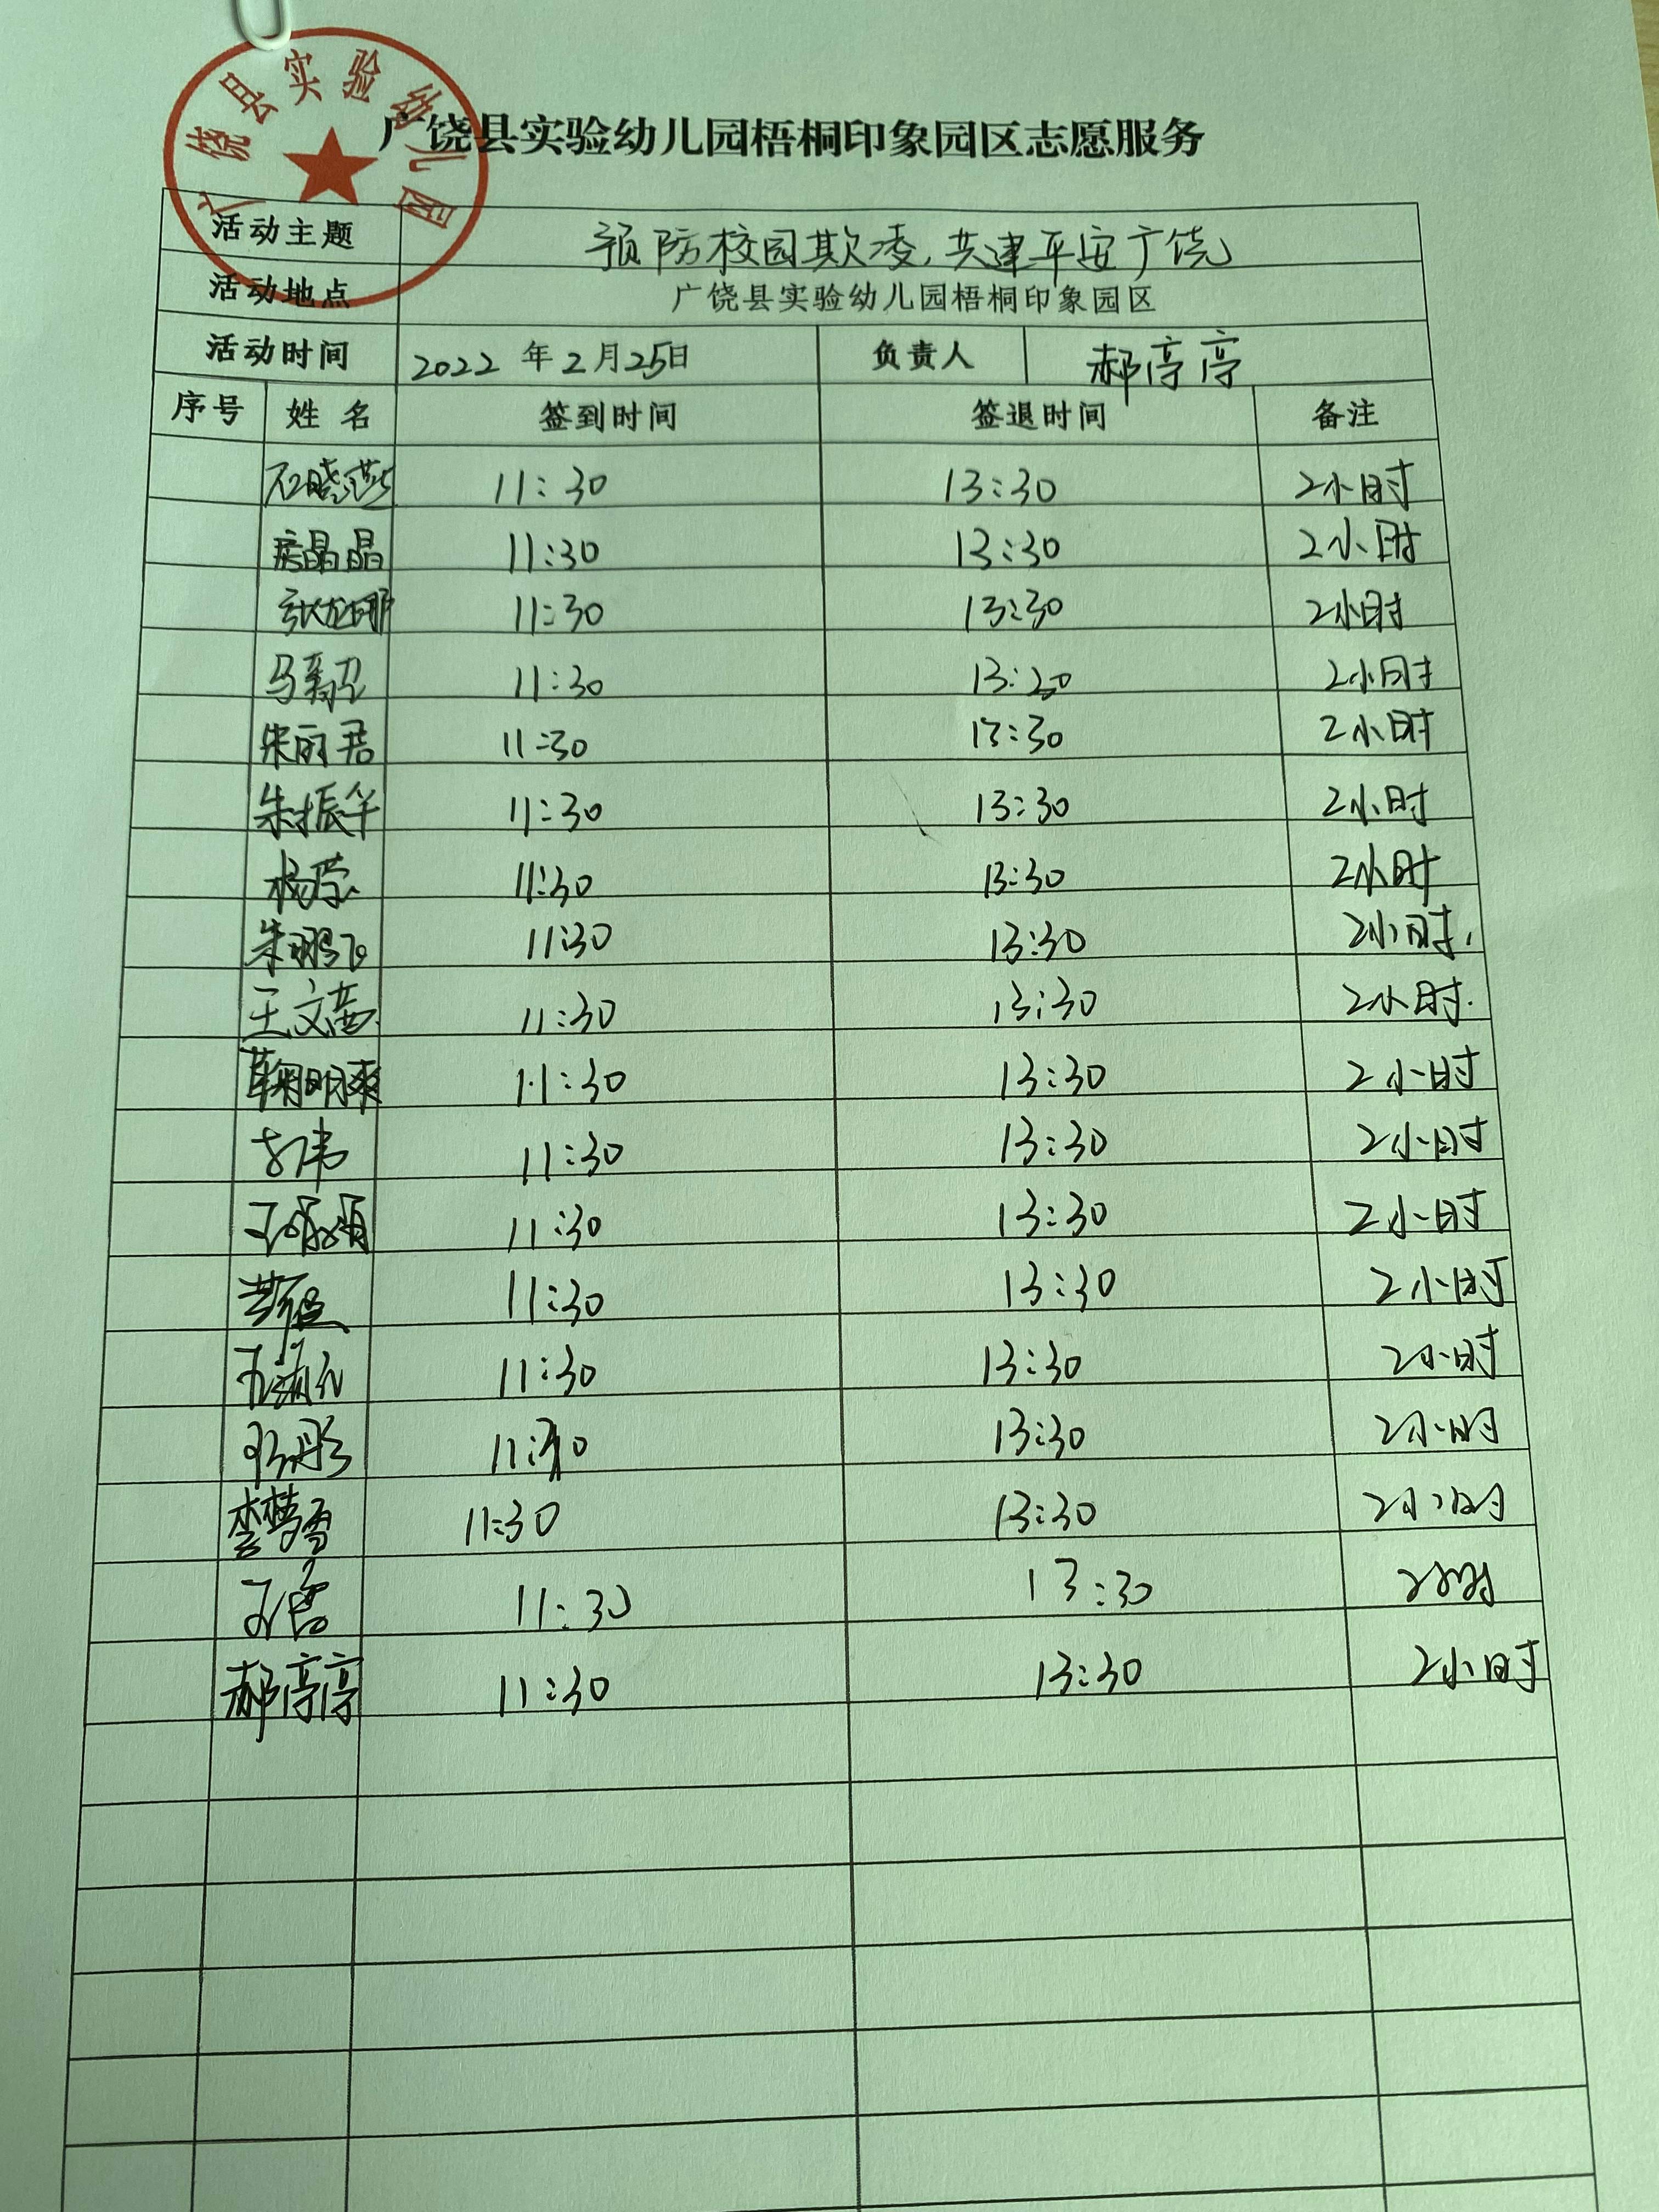 广饶县实验幼儿园
广饶县实验幼儿园梧桐印象园区志愿服务
活动主题 预防校园欺凌,共建平安广饶
活动地点 广饶县实验幼儿园梧桐印象园区
活动时间 2022年2月25日 负责人 郝亭亭
序号 姓名 签到时间 签退时间 备注
石晓燕 11:30 13:30 2小时
房晶晶 11:30 13:30 2小时
张龙娜 11:30 13:30 2小时
马新卫 11:30 13:30 2小时
朱丽君 11:30 13:30 2小时
朱振华 11:30 13:30 2小时
杨莹 11:30 13:30 2小时
朱鹏飞 11:30 13:30 2小时.
王文茜 11:30 13:30 2小时.
鞠明爽 11:30 13:30 2小时
11:30 13:30 2小时
11:30 13:30 2小时
11:30 13:30 2小时
11:30 13:30 2小时
11:30 13:30 2小时
李梦雪 11:30 13:30 2小时
王雪 11:30 13:30 2小时
郝亭亭 11:30 13:30 2小时